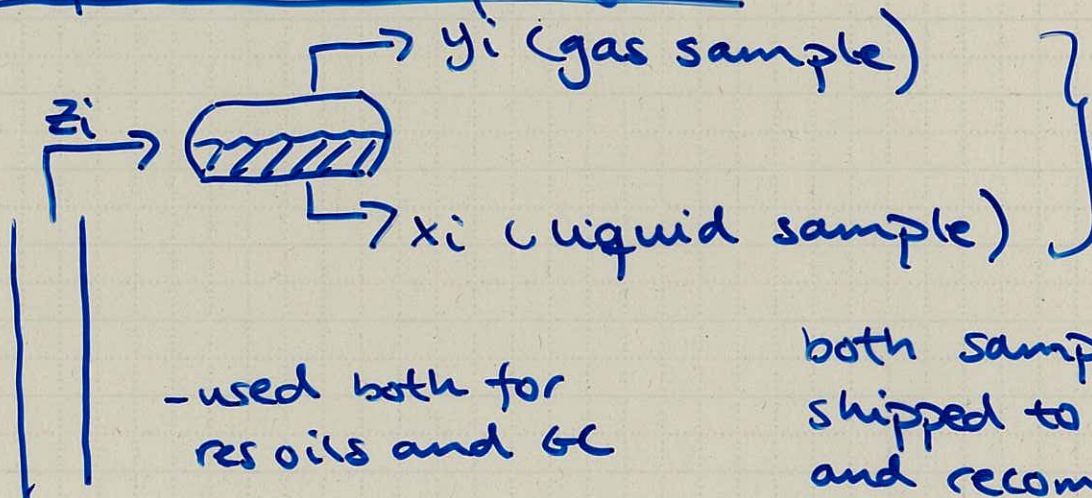 yi (gas sample)
zi
xi (liquid sample)
-used both for
res oils and GC
both samp
shipped to
and recom